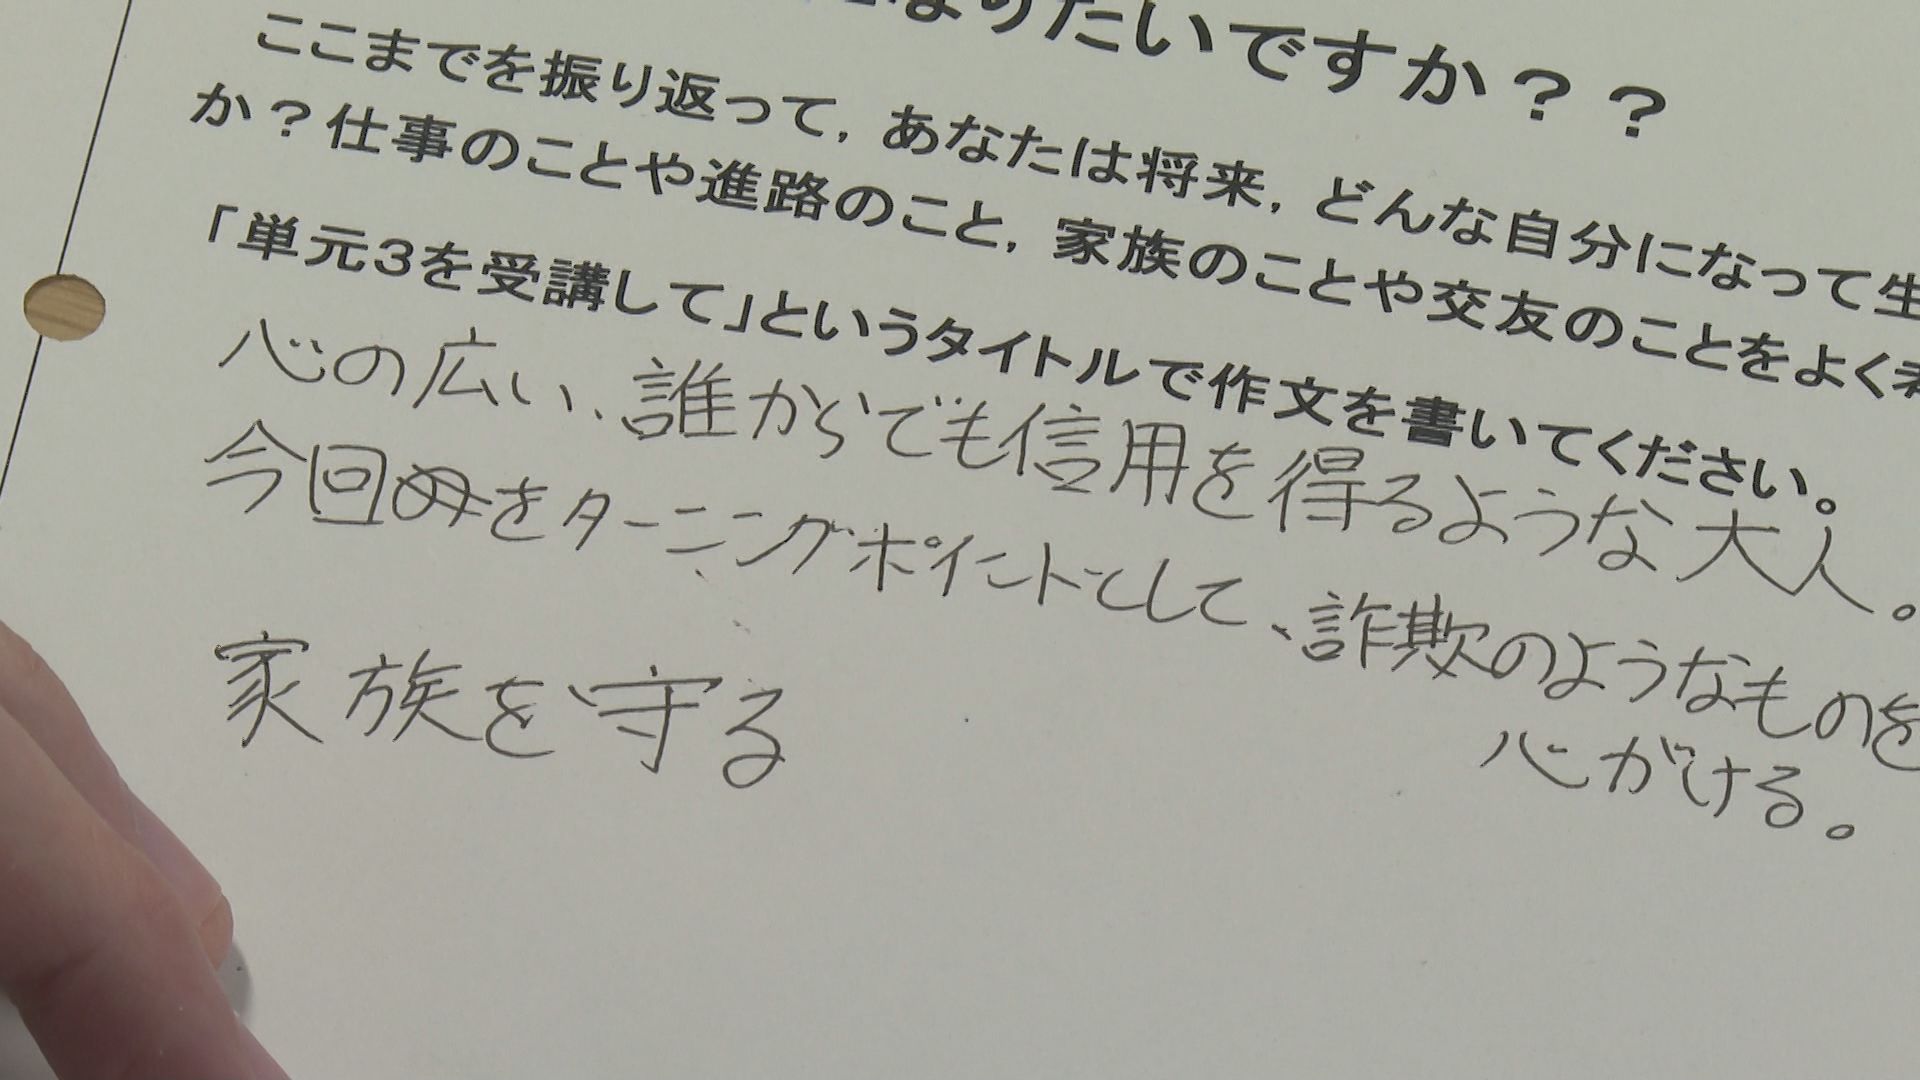 なりたいですか？？
ここまでを振り返って，あなたは将来，どんな自分になって生
か？仕事のことや進路のこと，家族のことや交友のことをよく考
「単元３を受講して」というタイトルで作文を書いてください。
心の広い、誰からでも信用を得るような大人。
今回をターニングポイントとして、詐欺のようなものを
心がける。
家族を守る